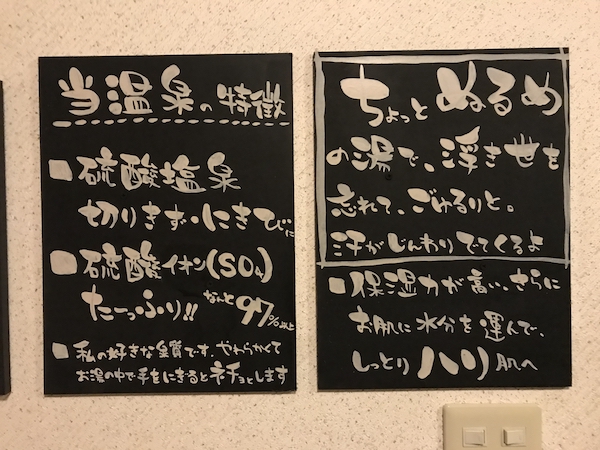 当温泉の特徴
■硫酸塩泉
切りきず・にきびに
■硫酸イオン(SO4)
たーっぷり!! なんと97%以上
■私の好きな泉質です。やわらかくて
お湯の中で手をにぎるとネチョっとします
ちょっとぬるめ
の湯で、浮き世を
忘れて、ごゆるりと。
汗がじんわりでてくるよ
■保湿力が高い、さらに
お肌に水分を運んで、
しっとりハリ肌へ